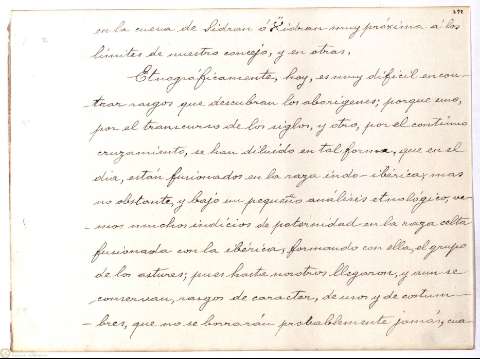 en la cueva de Sidran ó Xidran muy próxima á los
límites de nuestro concejo, y en otras.
Etnográficamente, hoy, es muy dificil encon-
-trar rasgos que descubran los aborígenes; porque uno,
por el transcurso de los siglos, y otro, por el contínuo
cruzamiento, se han diluído en tal forma, que en el
dia, están fusionados en la raza indo-ibérica; mas
no obstante, y bajo un pequeño análisis etnológico, ve-
-mos muchos indicios de paternidad en la raza celta
fusionada con la ibérica, formando con ella, el grupo
de los astures; pues hasta nosotros llegaron, y aun se
conservan, rasgos de caracter, de usos y de costum-
-bres, que no se borrarán probablemente jamás, cua